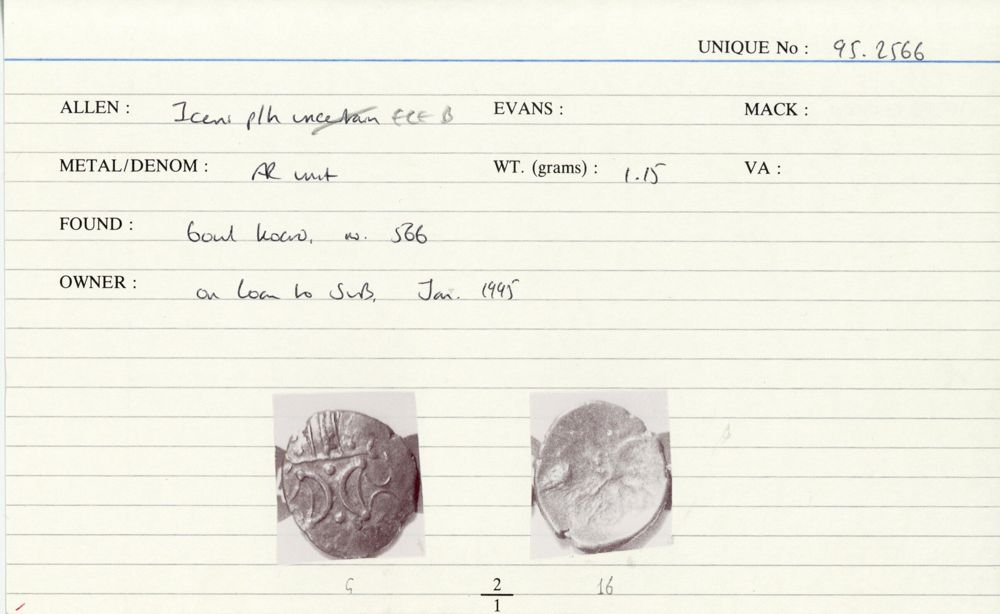 UNIQUE No : 95.2566
ALLEN : Iceni plh uncertain ECE B EVANS : MACK :
METAL/DENOM : AR unit WT. (grams) : 1.15 VA :
FOUND : bowl hoard, no. 566
OWNER : on loan to SWB, Jan. 1995
2
1
16